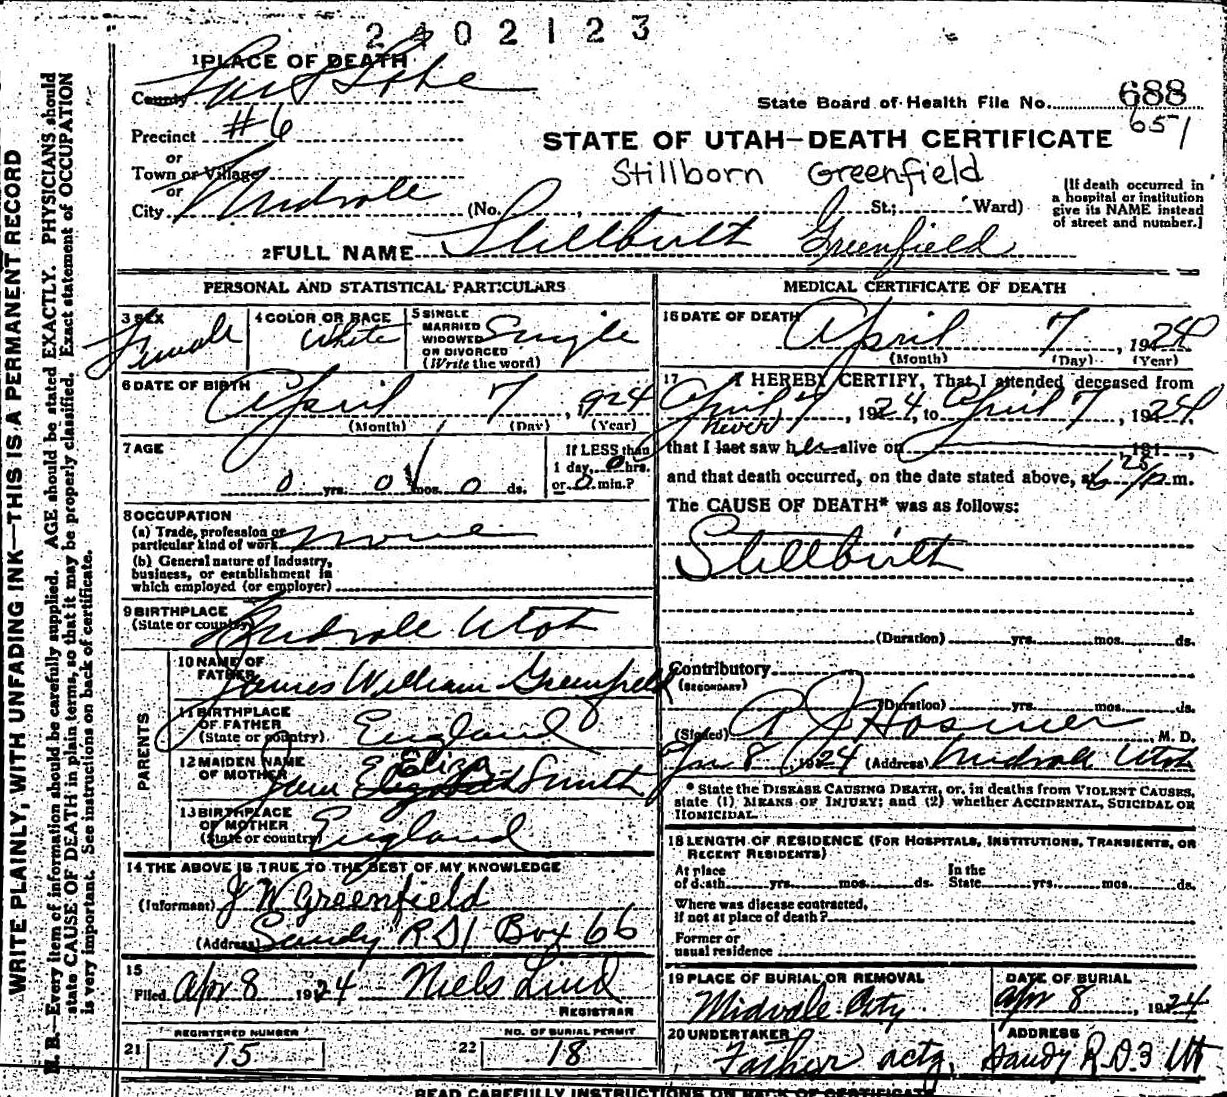 2402123
1 PLACE OF DEATH
County Salt Lake
State Board of Health File No. 688
651
Precinct #6
or
Town or Village
or
City Midvale
STATE OF UTAH—DEATH CERTIFICATE
Stillborn Greenfield
(No. St.; Ward)
[If death occurred in
a hospital or institution
give its NAME instead
of street and number.]
2 FULL NAME Stillbirth Greenfield
PERSONAL AND STATISTICAL PARTICULARS
3 SEX Female
4 COLOR OR RACE White
5 SINGLE
MARRIED
WIDOWED
OR DIVORCED
(Write the word) Single
6 DATE OF BIRTH
April 7, 1924
(Month) (Day) (Year)
7 AGE
0 yrs. 0 mos. 0 ds.
If LESS than
1 day, 0 hrs.
or 0 min.?
8 OCCUPATION
(a) Trade, profession or
particular kind of work none
(b) General nature of Industry,
business, or establishment in
which employed (or employer)
9 BIRTHPLACE
(State or country) Midvale Utah
PARENTS
10 NAME OF
FATHER James William Greenfield
11 BIRTHPLACE
OF FATHER
(State or country) England
12 MAIDEN NAME
OF MOTHER Jane Eliza Smith
13 BIRTHPLACE
OF MOTHER
(State or country) England
14 THE ABOVE IS TRUE TO THE BEST OF MY KNOWLEDGE
(Informant) J W Greenfield
(Address) Sandy R D 1 Box 66
15
Filed Apr 8 1924 Niels Lind
REGISTRAR
REGISTERED NUMBER
21 15
NO. OF BURIAL PERMIT
22 18
MEDICAL CERTIFICATE OF DEATH
16 DATE OF DEATH
April 7, 1924
(Month) (Day) (Year)
17 I HEREBY CERTIFY, That I attended deceased from
April 7, 1924, to April 7, 1924
never
that I last saw her alive on 191 ,
and that death occurred, on the date stated above, at 6 25/P m.
The CAUSE OF DEATH* was as follows:
Stillbirth
(Duration) yrs. mos. ds.
Contributory
(SECONDARY)
(Duration) yrs. mos. ds.
(Signed) A J Hosmer M. D.
8 1924 (Address) Midvale Utah
* State the DISEASE CAUSING DEATH, or, in deaths from VIOLENT CAUSES,
state (1) MEANS OF INJURY; and (2) whether ACCIDENTAL, SUICIDAL OR
HOMICIDAL.
18 LENGTH OF RESIDENCE (FOR HOSPITALS, INSTITUTIONS, TRANSIENTS, OR
RECENT RESIDENTS)
At place
of death yrs. mos. ds. In the
State yrs. mos. ds.
Where was disease contracted,
if not at place of death?
Former or
usual residence
19 PLACE OF BURIAL OR REMOVAL
Midvale City
DATE OF BURIAL
Apr 8, 1924
20 UNDERTAKER
Father actg.
ADDRESS
Sandy R.D.3 Ut
READ CAREFULLY INSTRUCTIONS ON BACK OF CERTIFICATE
WRITE PLAINLY, WITH UNFADING INK—THIS IS A PERMANENT RECORD
N. B.—Every item of information should be carefully supplied. AGE should be stated EXACTLY. PHYSICIANS should
state CAUSE OF DEATH in plain terms, so that it may be properly classified. Exact statement of OCCUPATION
is very important. See instructions on back of certificate.